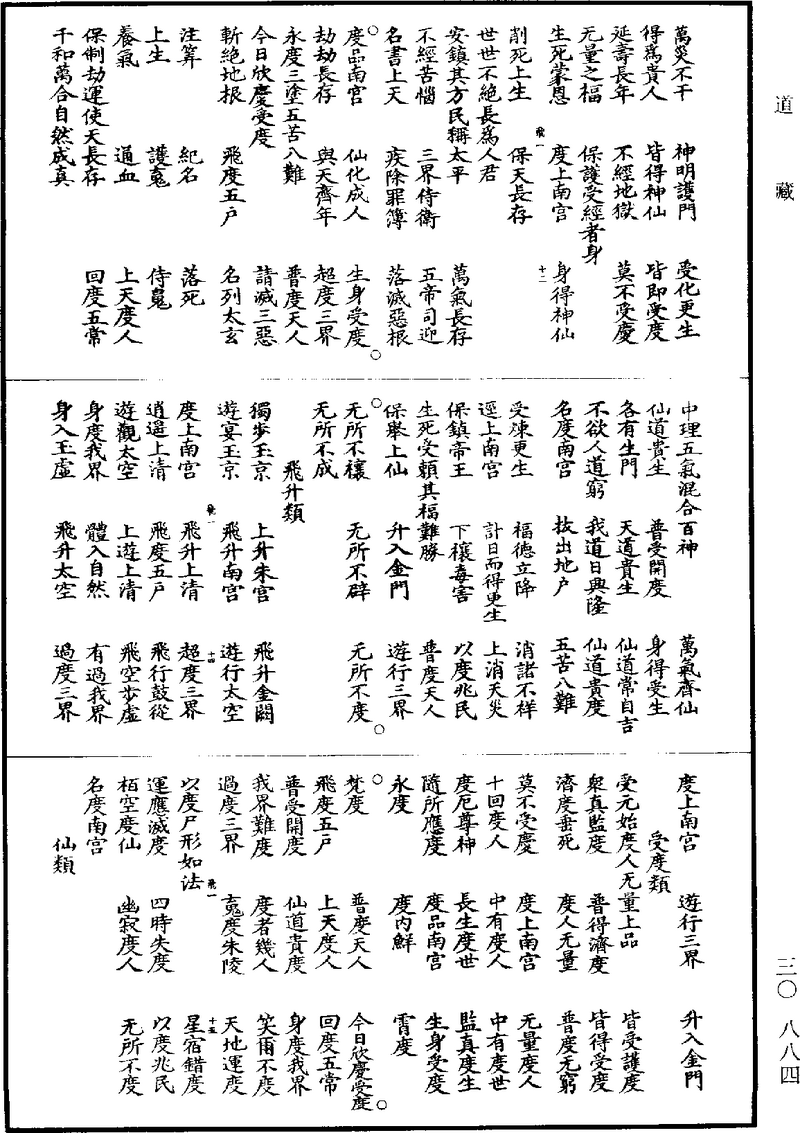 道藏
萬災不干　神明護門　受化更生
得為貴人　皆得神仙　皆即受度
延壽長年　不經地獄　莫不受慶
无量之福　保護受經者身
生死蒙恩　度上南宮　身得神仙
飛一　十二
削死上生　保天長存
世世不絕長為人君
安鎮其方民稱太平　萬氣長存
不經苦惱　三界侍衛　五帝司迎
名書上天　疾除罪簿　落滅惡根
○
度品南宮　仙化成人　生身受度
○
劫劫長存　與天齊年　超度三界
永度三塗五苦八難　普度天人
今日欣慶受度　請滅三惡
斬絕地根　飛度五戶　名列太玄
注筭　紀名　落死
上生　護䰟　侍䰟
養氣　通血　上天度人
保制劫運使天長存　回度五常
千和萬合自然成真
中理五氣混合百神　萬氣齊仙
仙道貴生　普受開度　身得受生
各有生門　天道貴生　仙道常自吉
不欲人道窮　我道日興隆　仙道貴度
名度南宮　拔出地戶　五苦八難
受煉更生　福德立降　消諸不祥
逕上南宮　計日而得更生　上消天災
保鎮帝王　下禳毒害　以度兆民
生死受賴其福難勝　普度天人
保舉上仙　升入金門　遊行三界
○
无所不禳　无所不辟　无所不度
○
无所不成
飛升類
獨步玉京　上升朱宮　飛升金闕
遊宴玉京　飛升南宮　遊行太空
飛一　十四
度上南宮　飛升上清　超度三界
逍遥上清　飛度五戶　飛行鼓從
遊觀太空　上遊上清　飛空步虛
身度我界　體入自然　有過我界
身入玉虛　飛升太空　過度三界
度上南宮　遊行三界　升入金門
受度類
受元始度人无量上品　皆受護度
衆真監度　普得濟度　皆得受度
濟度垂死　度人无量　普度无窮
莫不受慶　度上南宮　无量度人
十回度人　中有度人　中有度世
度厄尊神　長生度世　監真度生
隨所應度　度品南宮　生身受度
永度　度內鮮　霄度
○
梵度　普度天人　今日欣慶受度
○
飛度五戶　上天度人　回度五常
普受開度　仙道貴度　身度我界
我界難度　度者幾人　笑爾不度
過度三界　䰟度朱陵　天地運度
飛一　十五
以度尸形如法　星宿錯度
運應滅度　四時失度　以度兆民
栢空度仙　幽寂度人　无所不度
名度南宮
仙類
三〇　八八四